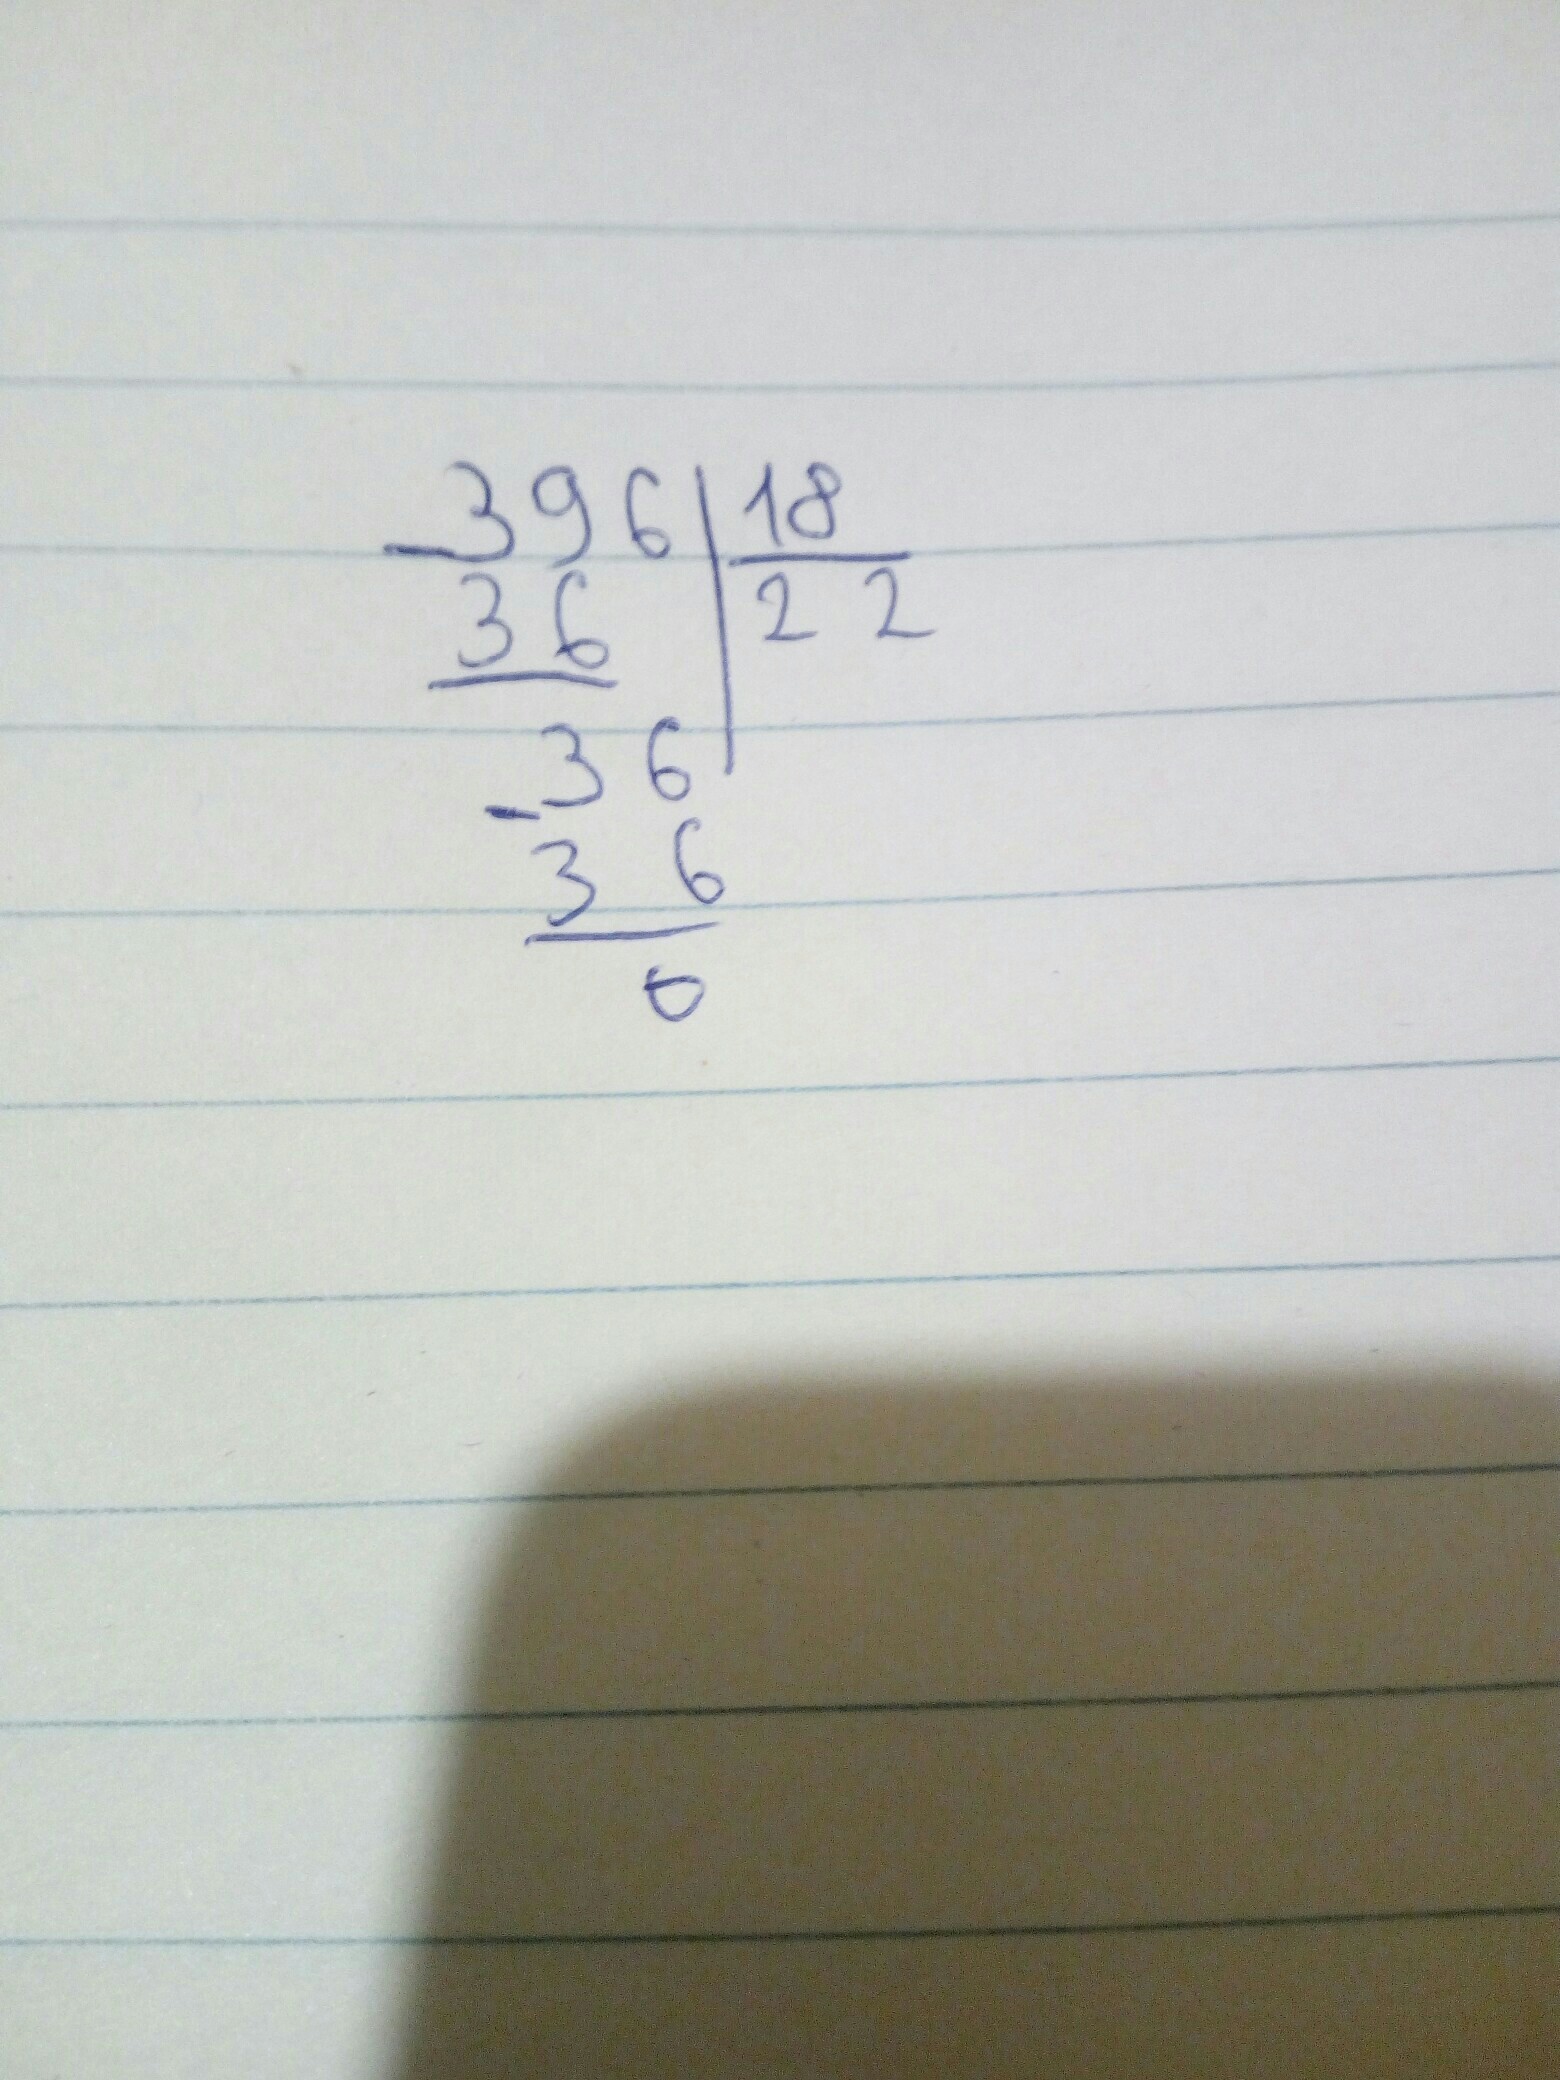 -396|18
36 22
-36
36
0